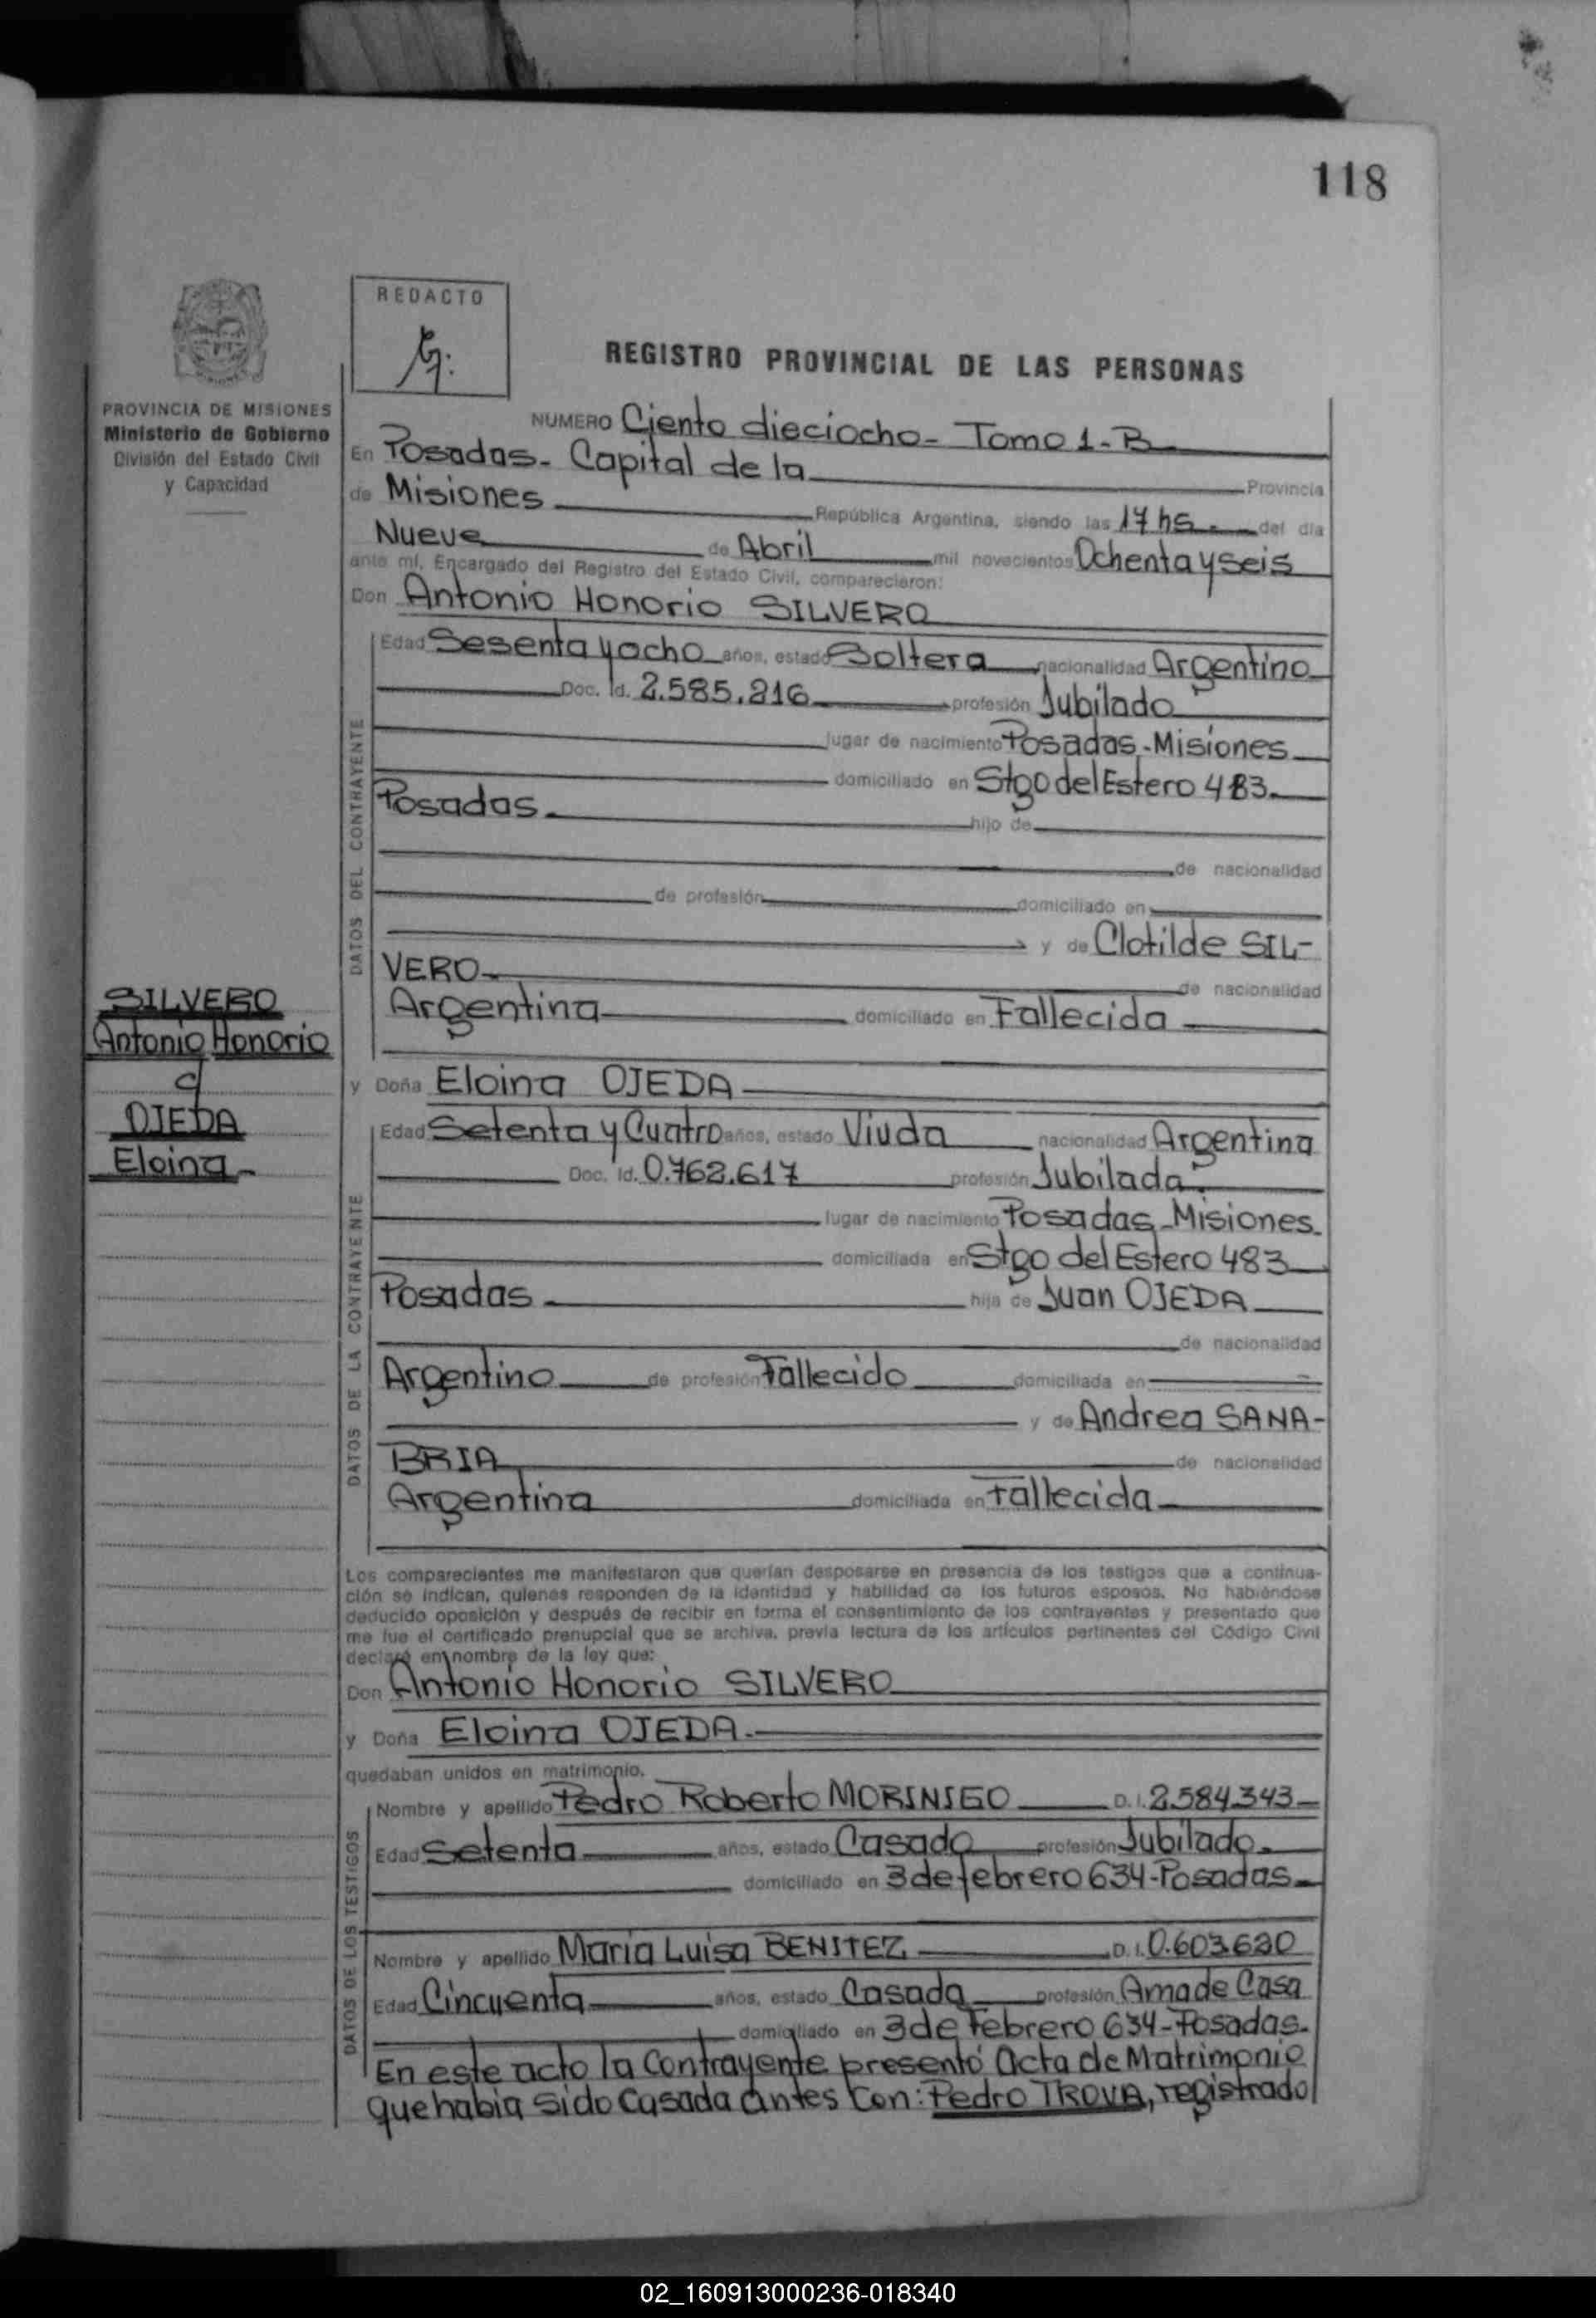 118
REDACTO
REGISTRO PROVINCIAL DE LAS PERSONAS
PROVINCIA DE MISIONES
Ministerio de Gobierno
División del Estado Civil
y Capacidad
NUMERO Ciento dieciocho - Tomo 1-B
En Posadas - Capital de la Provincia
de Misiones República Argentina, siendo las 17 hs. del día
Nueve de Abril mil novecientos Ochenta y Seis
ante mí, Encargado del Registro del Estado Civil, comparecieron:
Don Antonio Honorio SILVERO
DATOS DEL CONTRAYENTE
Edad Sesenta y ocho años, estado Soltera nacionalidad Argentino
Doc. Id. 2.585.216 profesión Jubilado
lugar de nacimiento Posadas - Misiones
domiciliado en Stgo del Estero 483.
Posadas. hijo de
de nacionalidad
de profesión domiciliado en
y de Clotilde SIL-
VERO de nacionalidad
Argentina domiciliado en Fallecida
SILVERO
Antonio Honorio
c/
OJEDA
Eloina -
y Doña Eloina OJEDA
DATOS DE LA CONTRAYENTE
Edad Setenta y Cuatro años, estado Viuda nacionalidad Argentina
Doc. Id. 0.762.617 profesión Jubilada
lugar de nacimiento Posadas - Misiones.
domiciliada en Stgo del Estero 483
Posadas hija de Juan OJEDA
de nacionalidad
Argentino de profesión Fallecido domiciliada en
y de Andrea SANA-
BRIA de nacionalidad
Argentina domiciliada en Fallecida
Los comparecientes me manifestaron que querían desposarse en presencia de los testigos que a continua-
ción se indican, quienes responden de la identidad y habilidad de los futuros esposos. No habiéndose
deducido oposición y después de recibir en forma el consentimiento de los contrayentes y presentado que
me fue el certificado prenupcial que se archiva, previa lectura de los artículos pertinentes del Código Civil
declaré en nombre de la ley que:
Don Antonio Honorio SILVERO
y Doña Eloina OJEDA.
quedaban unidos en matrimonio.
DATOS DE LOS TESTIGOS
Nombre y apellido Pedro Roberto MORINIGO D.I. 2.584.343
Edad Setenta años, estado Casado profesión Jubilado.
domiciliado en 3 de febrero 634 - Posadas
Nombre y apellido Maria Luisa BENITEZ D.I. 0.603.620
Edad Cincuenta años, estado Casada profesión Ama de Casa
domiciliado en 3 de Febrero 634 - Posadas.
En este acto la contrayente presentó Acta de Matrimonio
que habia sido Casada antes Con: Pedro TROVA, registrado
02_160913000236-018340